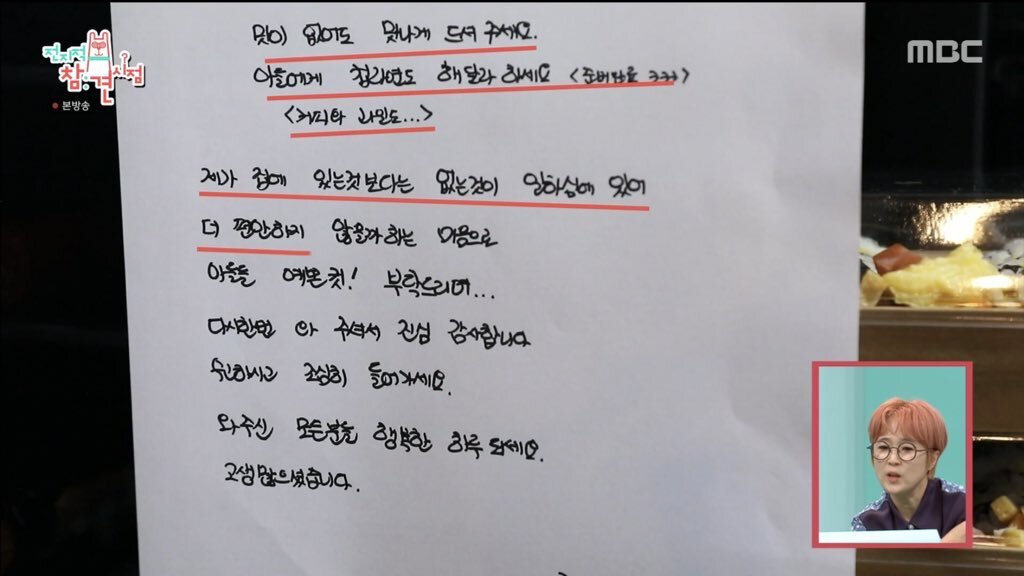 전지적
참견시점
본방송
MBC
맛이 없어도 맛나게 드셔 주세요.
아들에게 청라면도 해달라 하세요 <준비만료 ㅋㅋㅋ>
<커피와 라면도...>
제가 집에 있는것보다는 없는것이 일하심에 있어
더 편안하지 않을까하는 마음으로
아들들 예쁜컷! 부탁드리며...
다시한번 와 주셔서 진심 감사합니다
수고하시고 조심히 들어가세요.
와주신 모든분들 행복한 하루 되세요.
고생많으셨습니다.